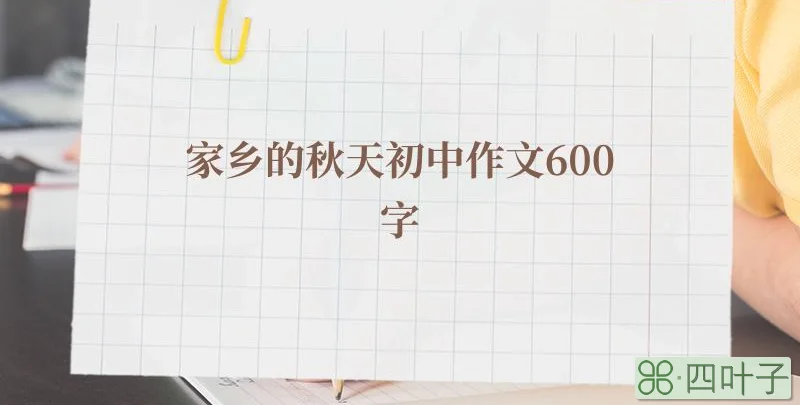 家乡的秋天初中作文600
字
四叶子